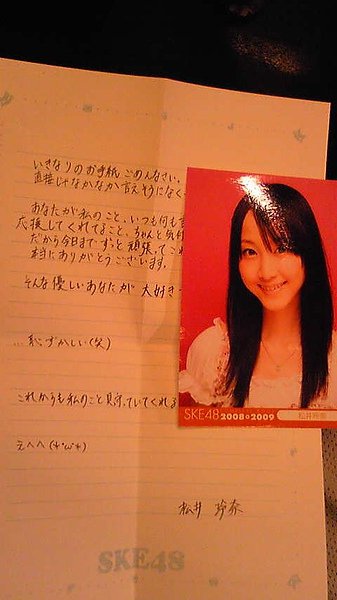 いきなりのお手紙ごめんなさい。
直接じゃなかなか言えそうになく
あなたが私のこと、いつも何も言
応援してくれてること、ちゃんと気付
だから今日まで ずっと 頑張ってこれ
本当にありがとうございます。
そんな優しいあなたが 大好き
…恥ずかしい(笑)
これからも私のこと見守っていてくれる
えへへ(*'ω'*)
松井 玲奈
SKE48
SKE48 2008-2009
松井玲奈